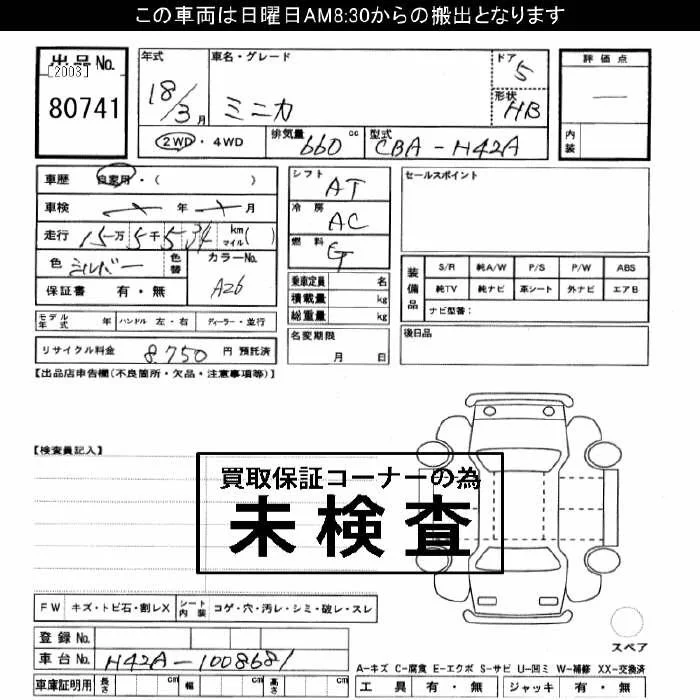 この車両は日曜日AM8:30からの搬出となります
出品No.
[2003]
80741
年式
18/3月
車名・グレード
ミニカ
ドア
5
形状
HB
2WD・4WD
排気量 660 cc
型式 CBA-H42A
評価点
内装
車歴 自家用・( )
車検 年 月
走行 15万5千534 km マイル( )
色 シルバー
色替
カラーNo.
A26
保証書 有・無
シフト AT
冷房 AC
燃料 G
乗車定員 名
積載量 kg
総重量 kg
セールスポイント
装備品
S/R 純A/W P/S P/W ABS
純TV 純ナビ 革シート 外ナビ エアB
ナビ型番:
モデル年式 年 ハンドル 左・右 ディーラー・並行
名変期限
月 日
後日品
リサイクル料金 8,750 円 預託済
【出品店申告欄(不良箇所・欠品・注意事項等)】
【検査員記入】
買取保証コーナーの為
未検査
FW キズ・トビ石・割レX
シート内装 コゲ・穴・汚レ・シミ・破レ・スレ
スペア
登録No.
車台No. H42A-1008681
A-キズ C-腐食 E-エクボ S-サビ U-凹ミ W-補修 XX-交換済
車庫証明用 長さ cm 幅 cm 高さ cm
工具 有・無 ジャッキ 有・無